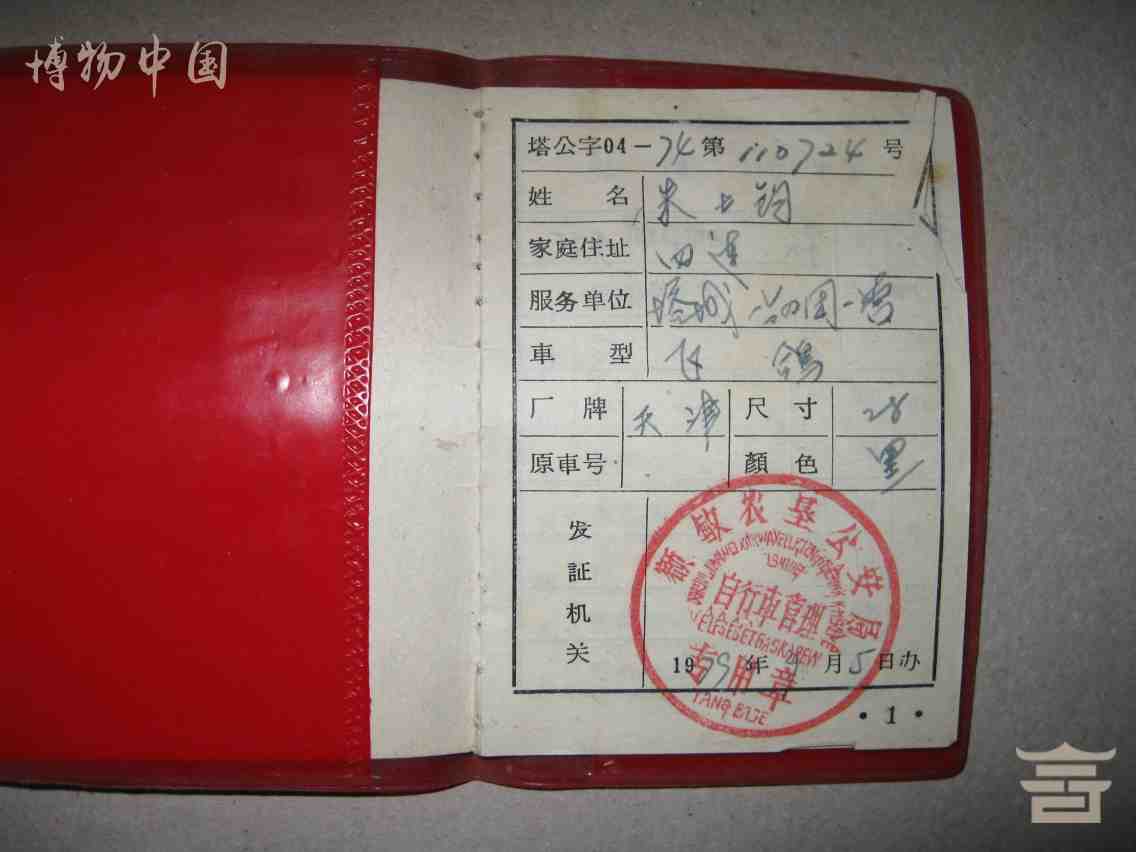 博物中国
塔公字04-74第110724号
姓名 朱上钧
家庭住址 四连
服务单位 塔城 团一营
车型 飞鸽
厂牌 天津 尺寸 28
原車号 顏色 黑
发証机关
额敏农垦公安局
自行車管理
VELSESEPET BASKAREW
专用章
TANQ BIJE
1979年 月5日办
·1·